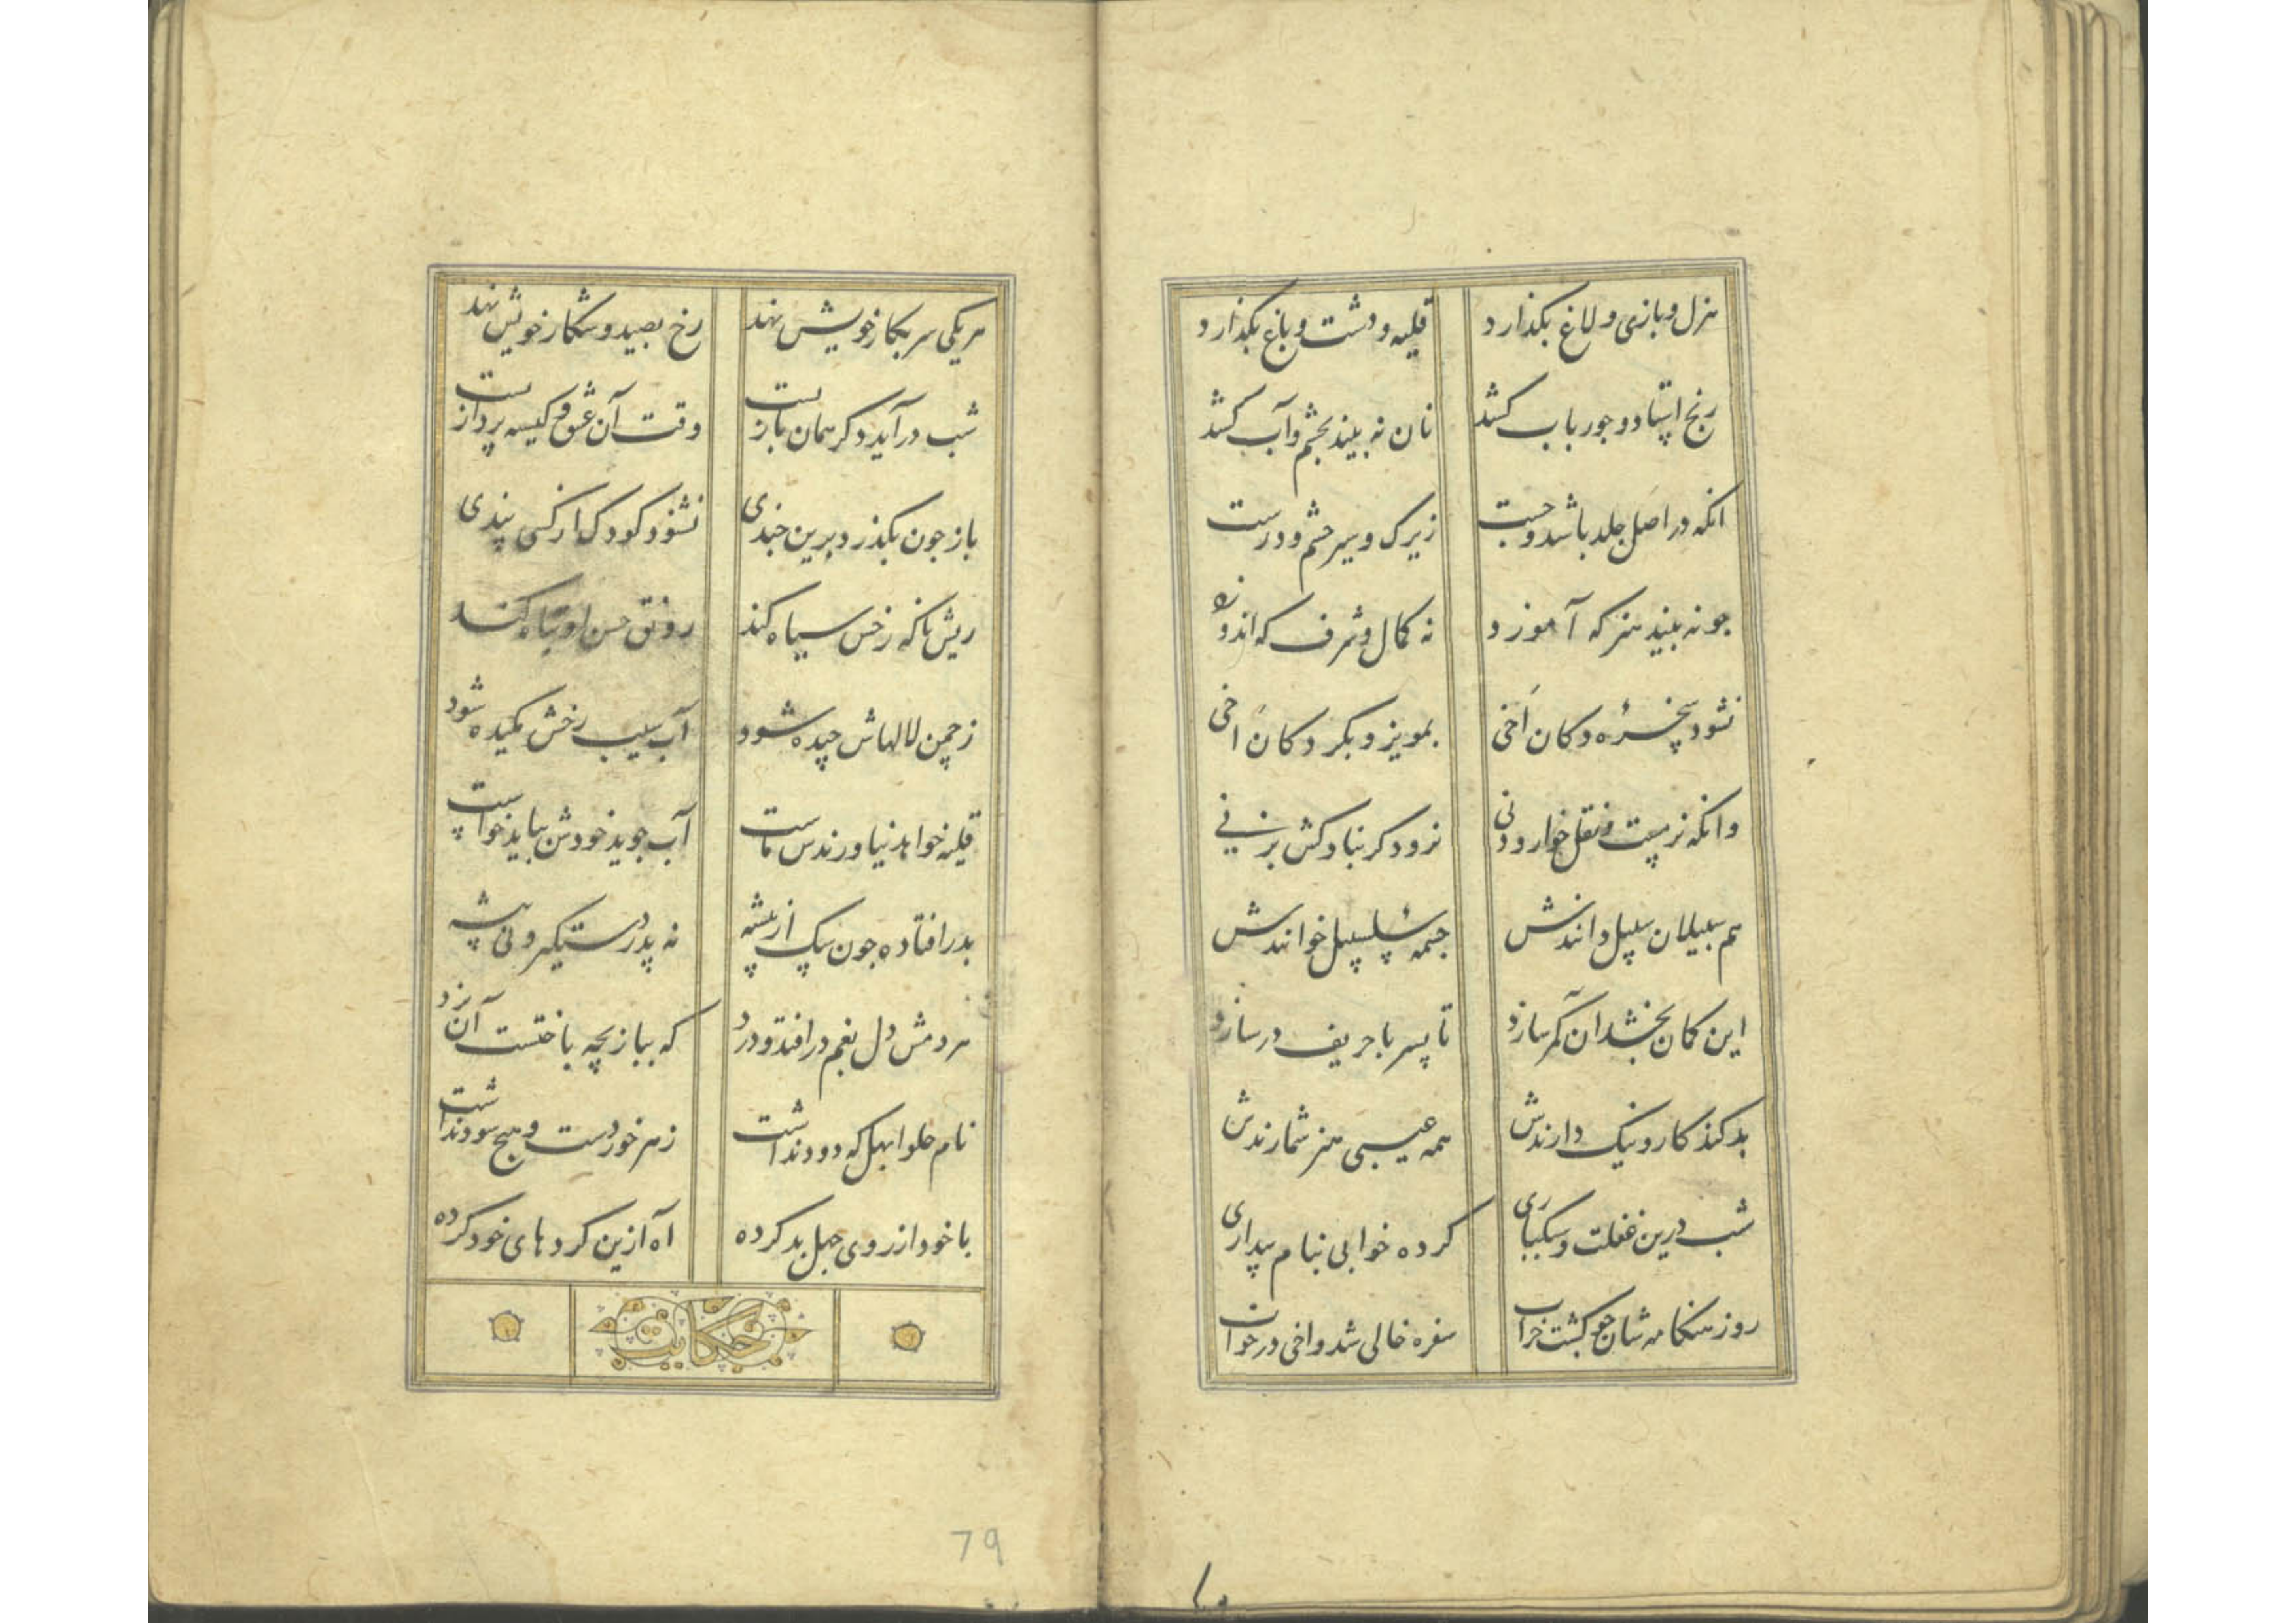 هزل و بازی و لاغ بکذارد قلیه و دشت و باغ بکذارد
رنج استاد و جور باب کشد نان نه بیند بچشم و آب کشد
انکه در اصل جلد باشد و چست زیرک و سیر چشم و درست
چو نه بیند هنر که آموزد نه کمال و شرف که اندوزد
نشود سخره دکان اخی بمویز و بکردکان اخی
وانکه نر مست و نقل خوار و دنی نرود کر بنا وکش بزنی
هم سبیلان سبیل دانندش چمه سلسبیل خوانندش
این کمان بخشد آن کمر سازد تا پسر با حریف درسازد
بد کند کار و نیک دارندش همه عیبی هنر شمارندش
شب درین غفلت و سبکباری کرده خوابی بنام بیداری
روز هنکامه شان چو کشت خراب سفره خالی شد و اخی در خواب
هر یکی سر بکار خویش نهد رخ بصید و شکار خویش نهد
شب درآید دکر همان بازست وقت آن عشق کیسه پردازست
باز چون بکذرد برین چندی نشنود کودک از کسی پندی
ریش ناکه رخش سیاه کند رونق حسن او تباه کند
ز چمن لالهاش چیده شود آب سیب رخش مکیده شود
قلیه خواهد نیاورندس ماست آب جوید خودش بباید خواست
بدر افتاده چون سک از بیشه نه پدر دستکیر و نی پیشه
هر دمش دل بغم درافتد و درد که ببازیچه باختست آن نرد
نام حلوا بهل که دود نداشت زهر خوردست و هیچ سود نداشت
با خود از روی جهل بد کرده اه ازین کردهای خود کرده
حکایت
79